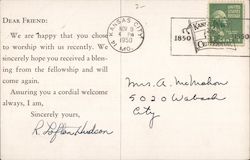 2-
DEAR FRIEND:
We are happy that you chose
to worship with us recently. We
sincerely hope you received a bless-
ing from the fellowship and will
come again.
Assuring you a cordial welcome
always, I am,
Sincerely yours,
R. Lofton Hudson
KANSAS CITY
4 PM
1950
MO.
1850
1950
Mrs. A. McMahon
5020 Wabash
City